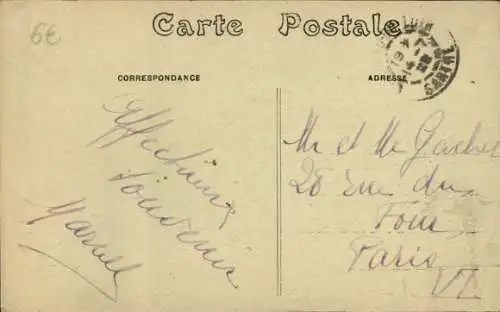 6€
Carte Postale
CORRESPONDANCE
ADRESSE
SARTHE
Affectueux
Souvenir
Marcel
Mr et Me
28 rue du
Four
Paris
VI